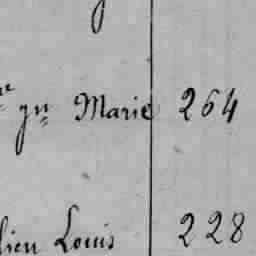 jn Marie 264
lien Louis 228